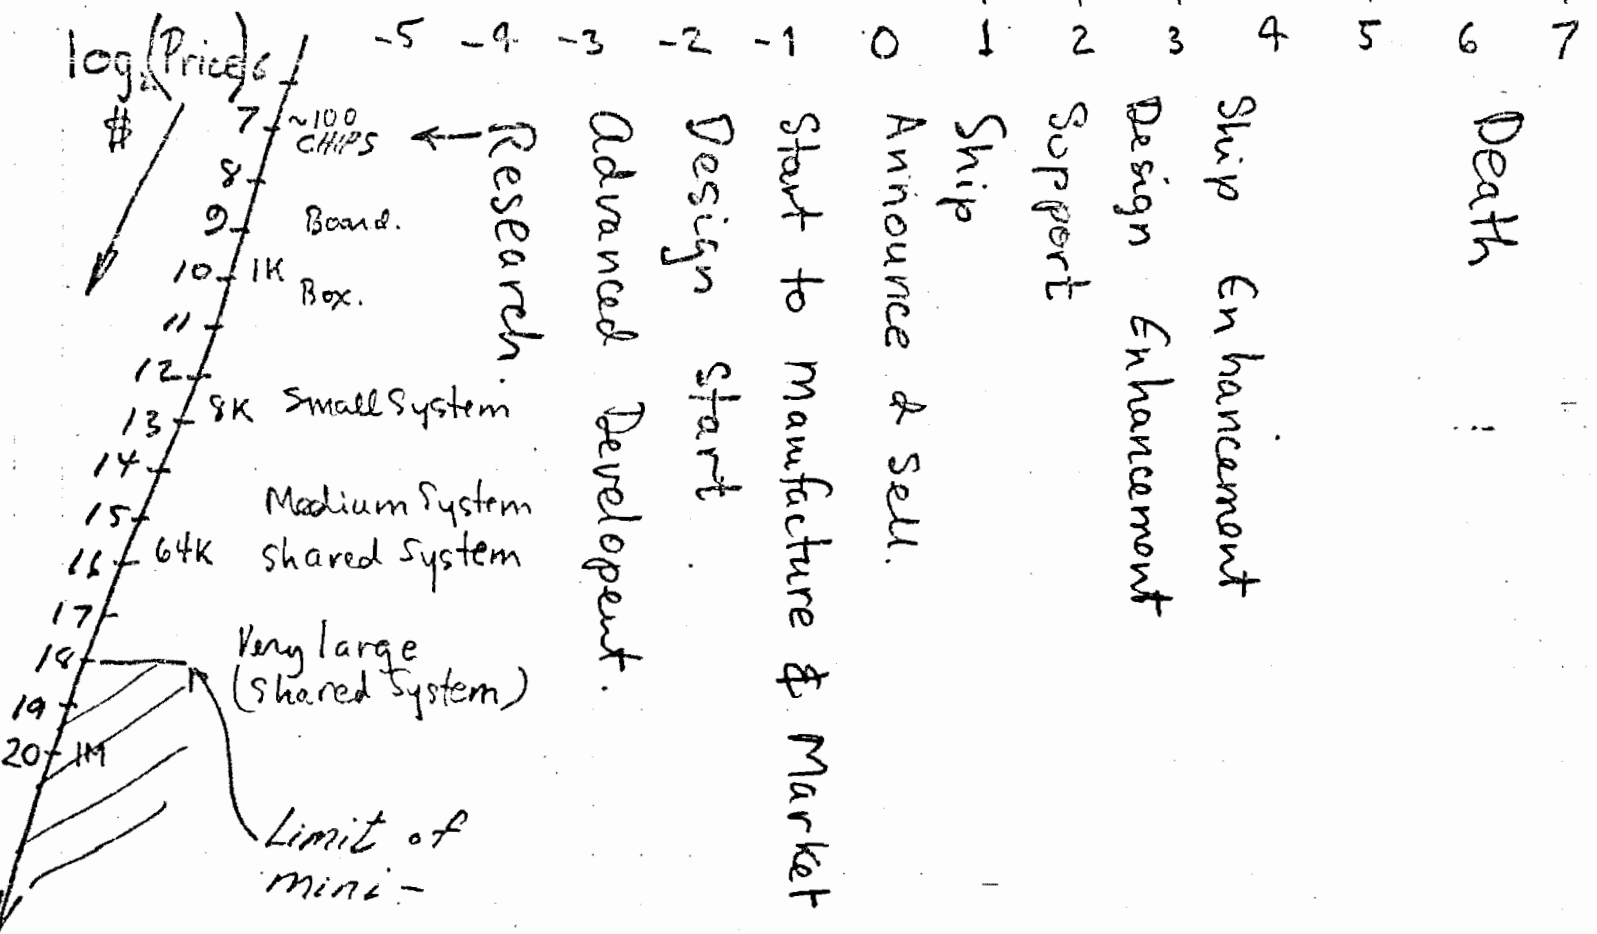 log₂(Price)
$
-5 -4 -3 -2 -1 0 1 2 3 4 5 6 7
6
7 ~100 CHIPS
8
9 Board.
10 1K
Box.
11
12
13 8K Small System
14
15 Medium System
16 64K Shared System
17
18 Very large
(Shared System)
19
20 1M
Limit of
mini-
← Research.
Advanced Developent.
Design Start
Start to Manufacture & Market
Announce & Sell.
Ship
Support
Design Enhancement
Ship Enhancement
...
Death